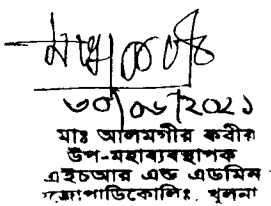 ৩০/০৬/2021
মোঃ আলমগীর কবীর
উপ-মহাব্যবস্থাপক
এইচআর এন্ড এডমিন
ওজোপাডিকোলিঃ, খুলনা